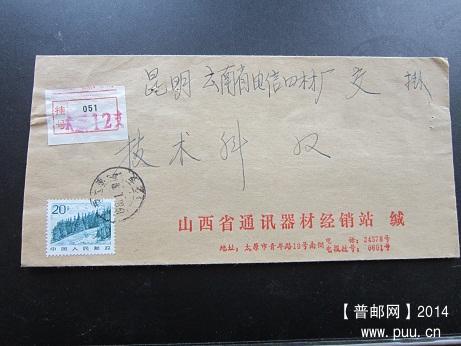 昆明云南省电信器材厂 交 挂
051
技术科 收
20分
中国人民邮政
山西省通讯器材经销站 缄
地址：太原市青年路19号南侧 电话：24578号
电报挂号：0001号
【普邮网】2014
www.puu.cn